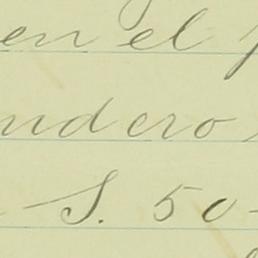 en el
ndero
S. 50